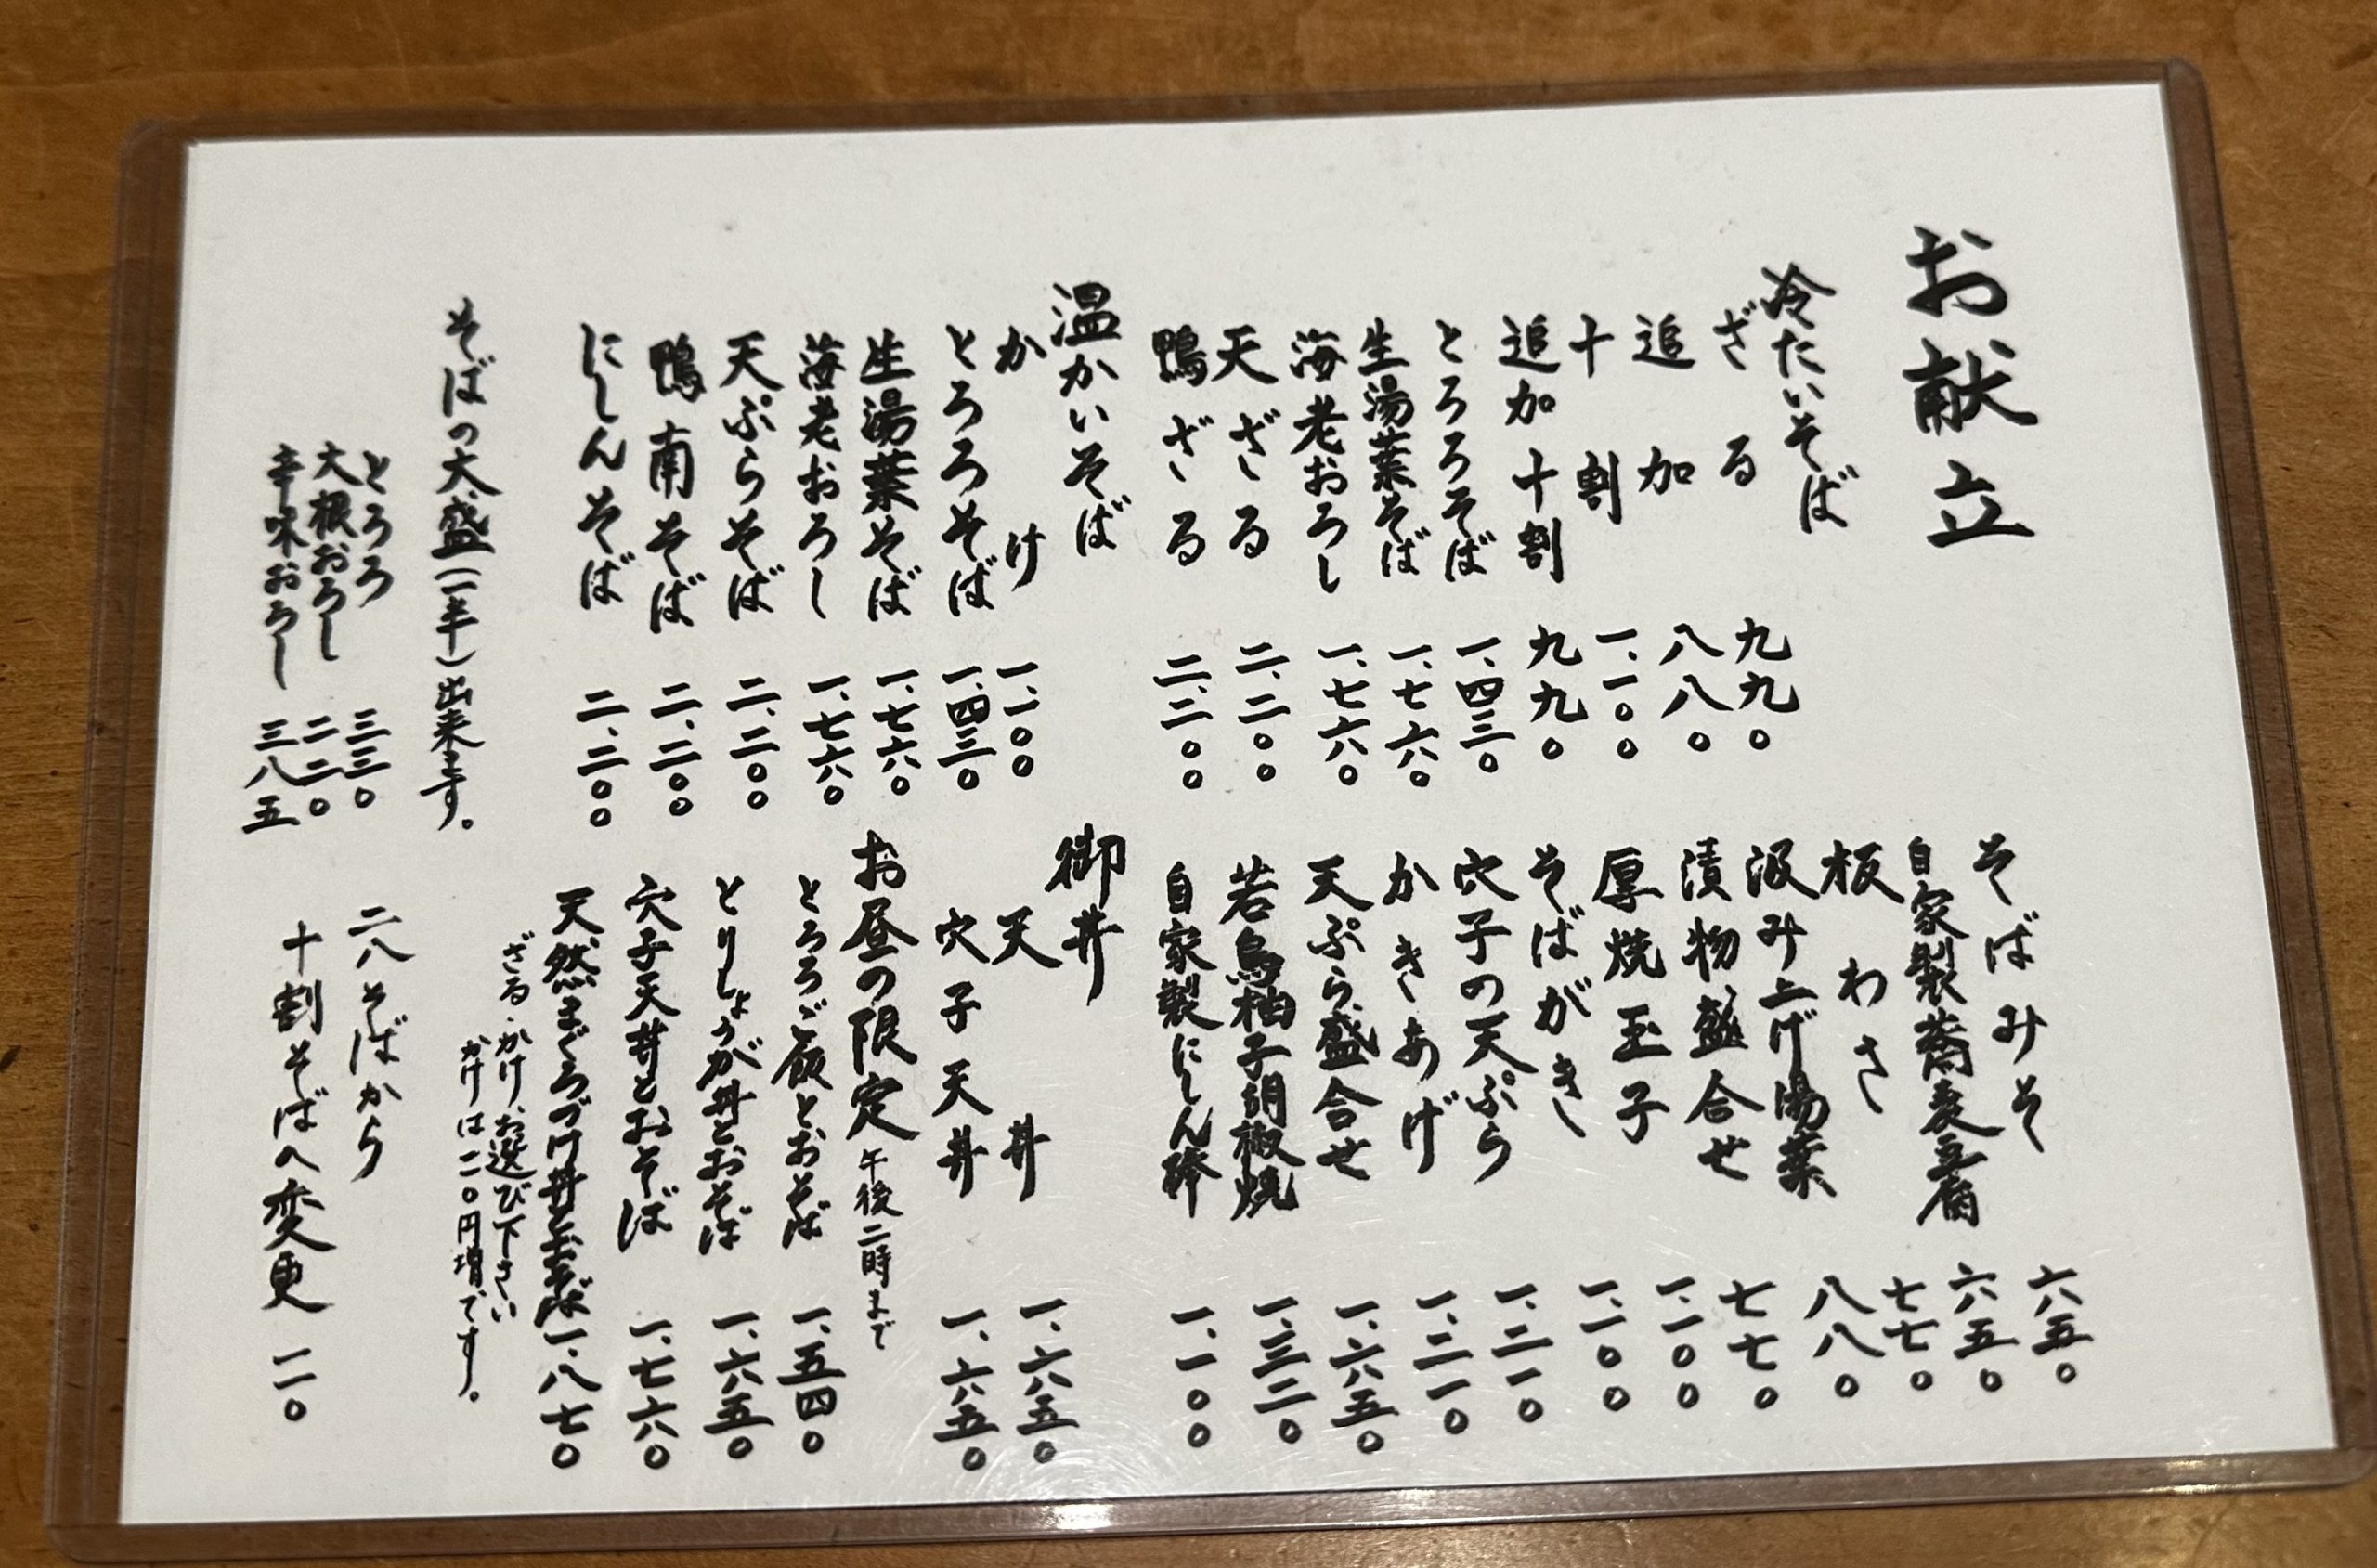 お献立
冷たいそば
ざる 九九〇
追加 八八〇
十割 一、一〇〇
追加十割 九九〇
とろろそば 一、四三〇
生湯葉そば 一、七六〇
海老おろし 一、七六〇
天ざる 二、二〇〇
鴨ざる 二、二〇〇
温かいそば
かけ 一、一〇〇
とろろそば 一、四三〇
生湯葉そば 一、七六〇
海老おろし 一、七六〇
天ぷらそば 二、二〇〇
鴨南そば 二、二〇〇
にしんそば 二、二〇〇
そばの大盛(一半)出来ます。
とろろ 三三〇
大根おろし 二二〇
辛味おろし 三八五
そばみそ 六五〇
自家製蕎麦豆腐 六五〇
板わさ 七七〇
汲み上げ湯葉 八八〇
漬物盛合せ 七七〇
厚焼玉子 一、一〇〇
そばがき 一、一〇〇
穴子の天ぷら 一、二一〇
かきあげ 一、二一〇
天ぷら盛合せ 一、六五〇
若鳥柚子胡椒焼 一、三二〇
自家製にしん 一、一〇〇
御丼
天丼 一、六五〇
穴子天丼 一、六五〇
お昼の限定 午後二時まで
とろろご飯とおそば 一、五四〇
とりしょうが丼とおそば 一、六五〇
穴子天丼とおそば 一、七六〇
天然まぐろづけ丼とおそば 一、八七〇
ざる・かけ、お選び下さい
かけは一一〇円増です。
二八そばから
十割そばへ変更 一一〇